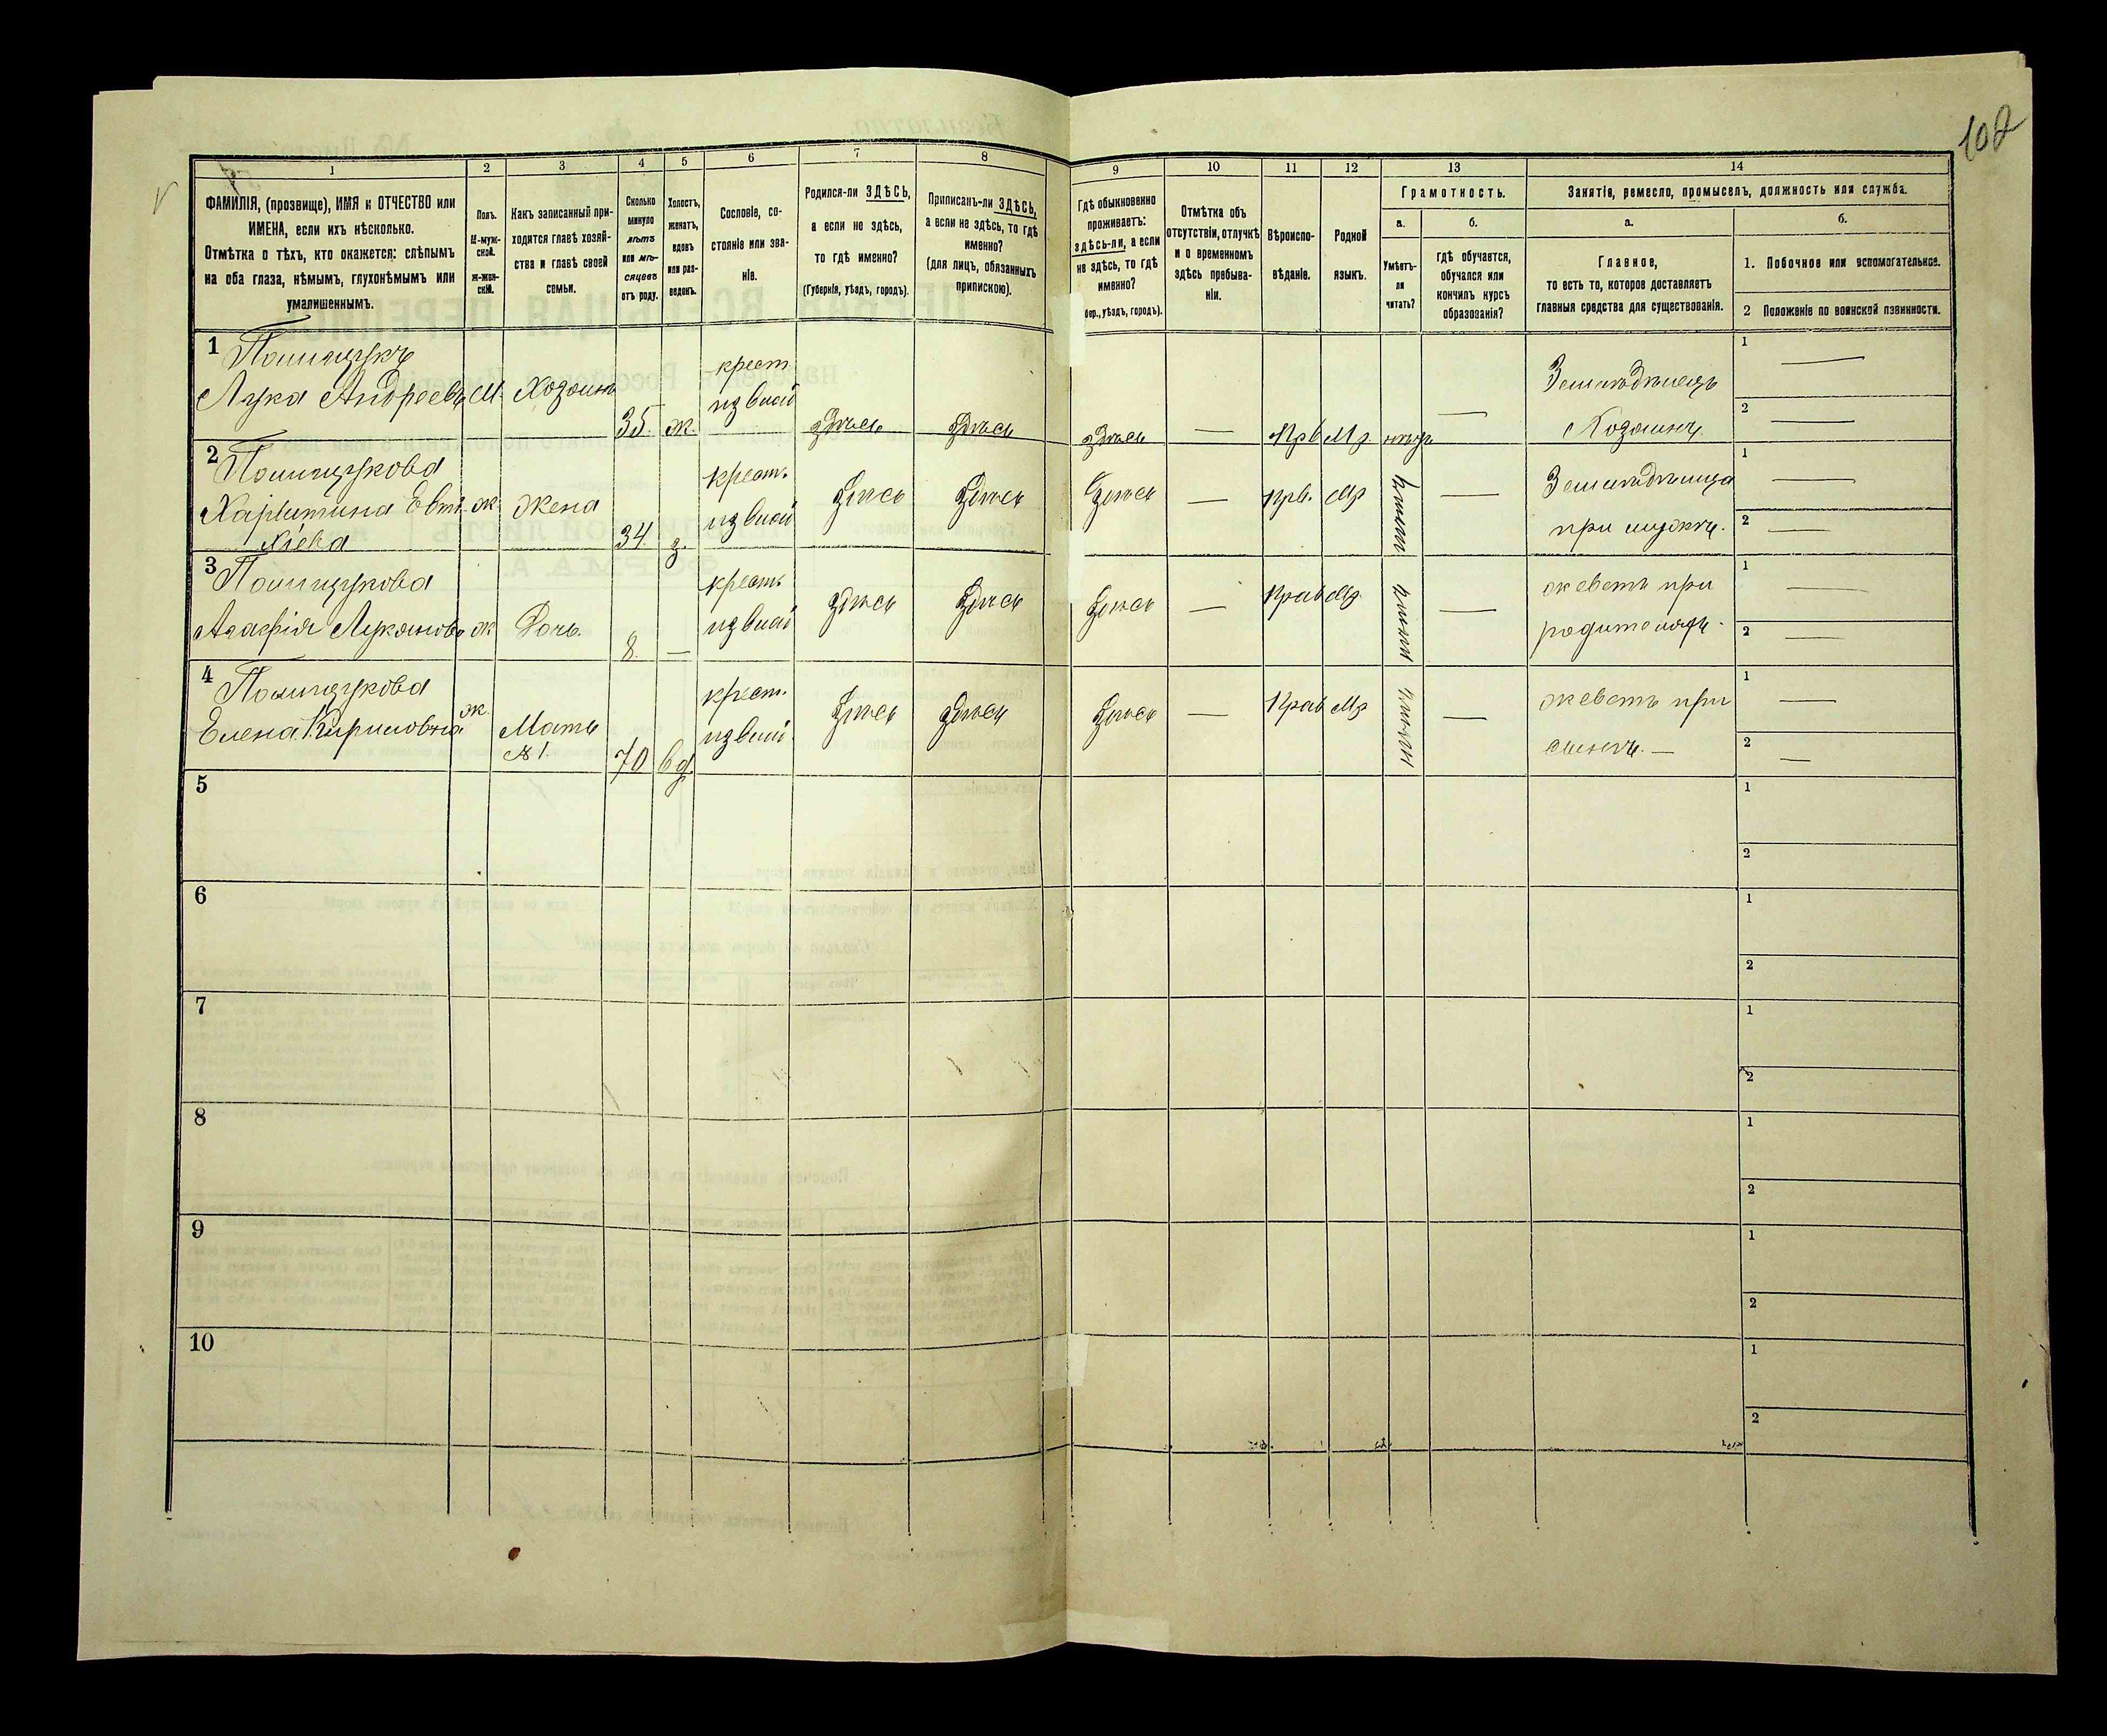 102
1
2
3
4
5
6
7
8
9
10
11
12
13
14
ФАМИЛІЯ, (прозвище), ИМЯ и ОТЧЕСТВО или
ИМЕНА, если ихъ нѣсколько.
Отмѣтка о тѣхъ, кто окажется: слѣпымъ
на оба глаза, нѣмымъ, глухонѣмымъ или
умалишеннымъ.
Полъ.
М-муж-
ской.
ж-жен-
скій.
Какъ записанный при-
ходится главѣ хозяй-
ства и главѣ своей
семьи.
Сколько
минуло
лѣтъ
или мѣ-
сяцевъ
отъ роду.
Холостъ,
женатъ,
вдовъ
или раз-
веденъ.
Сословіе, со-
стояніе или зва-
ніе.
Родился-ли ЗДѢСЬ,
а если не здѣсь,
то гдѣ именно?
(Губернія, уѣздъ, городъ).
Приписанъ-ли ЗДѢСЬ,
а если не здѣсь, то гдѣ
именно?
(для лицъ, обязанныхъ
припискою).
Гдѣ обыкновенно
проживаетъ:
здѣсь-ли, а если
не здѣсь, то гдѣ
именно?
бер., уѣздъ, городъ).
Отмѣтка объ
отсутствіи, отлучкѣ
и о временномъ
здѣсь пребыва-
ніи.
Вѣроиспо-
вѣданіе.
Родной
языкъ.
Грамотность.
а.
Умѣетъ-
ли
читать?
б.
гдѣ обучается,
обучался или
кончилъ курсъ
образованія?
Занятія, ремесло, промыселъ, должность или служба.
а.
Главное,
то есть то, которое доставляетъ
главныя средства для существованія.
б.
1. Побочное или вспомогательное.
2 Положеніе по воинской повинности.
1 Полищукъ
Лука Андреевъ М. Хозяинъ 35. ж. крест. из влад здѣсь здѣсь здѣсь — Прв Мр нѣтъ — Земледѣлецъ Хозяинъ. 1 — 2 —
2 Полищукова
Харитина Евти-
хіева ж. Жена 34 з. крест. из влад здѣсь здѣсь здѣсь — Прв. Мр — Земледѣлица при мужѣ. 1 — 2 —
3 Полищукова
Агафія Лукянова ж Дочь. 8. — крест. из влад здѣсь здѣсь здѣсь — Прав Мр — жеветь при родителяхъ. 1 — 2 —
4 Полищукова
Елена Кириловна ж. Мать №1. 70 вд. крест. из влад здѣсь здѣсь здѣсь — Прав Мр — жеветъ при сынѣ. — 1 — 2 —
5 1 2
6 1 2
7 1 2
8 1 2
9 1 2
10 1 2